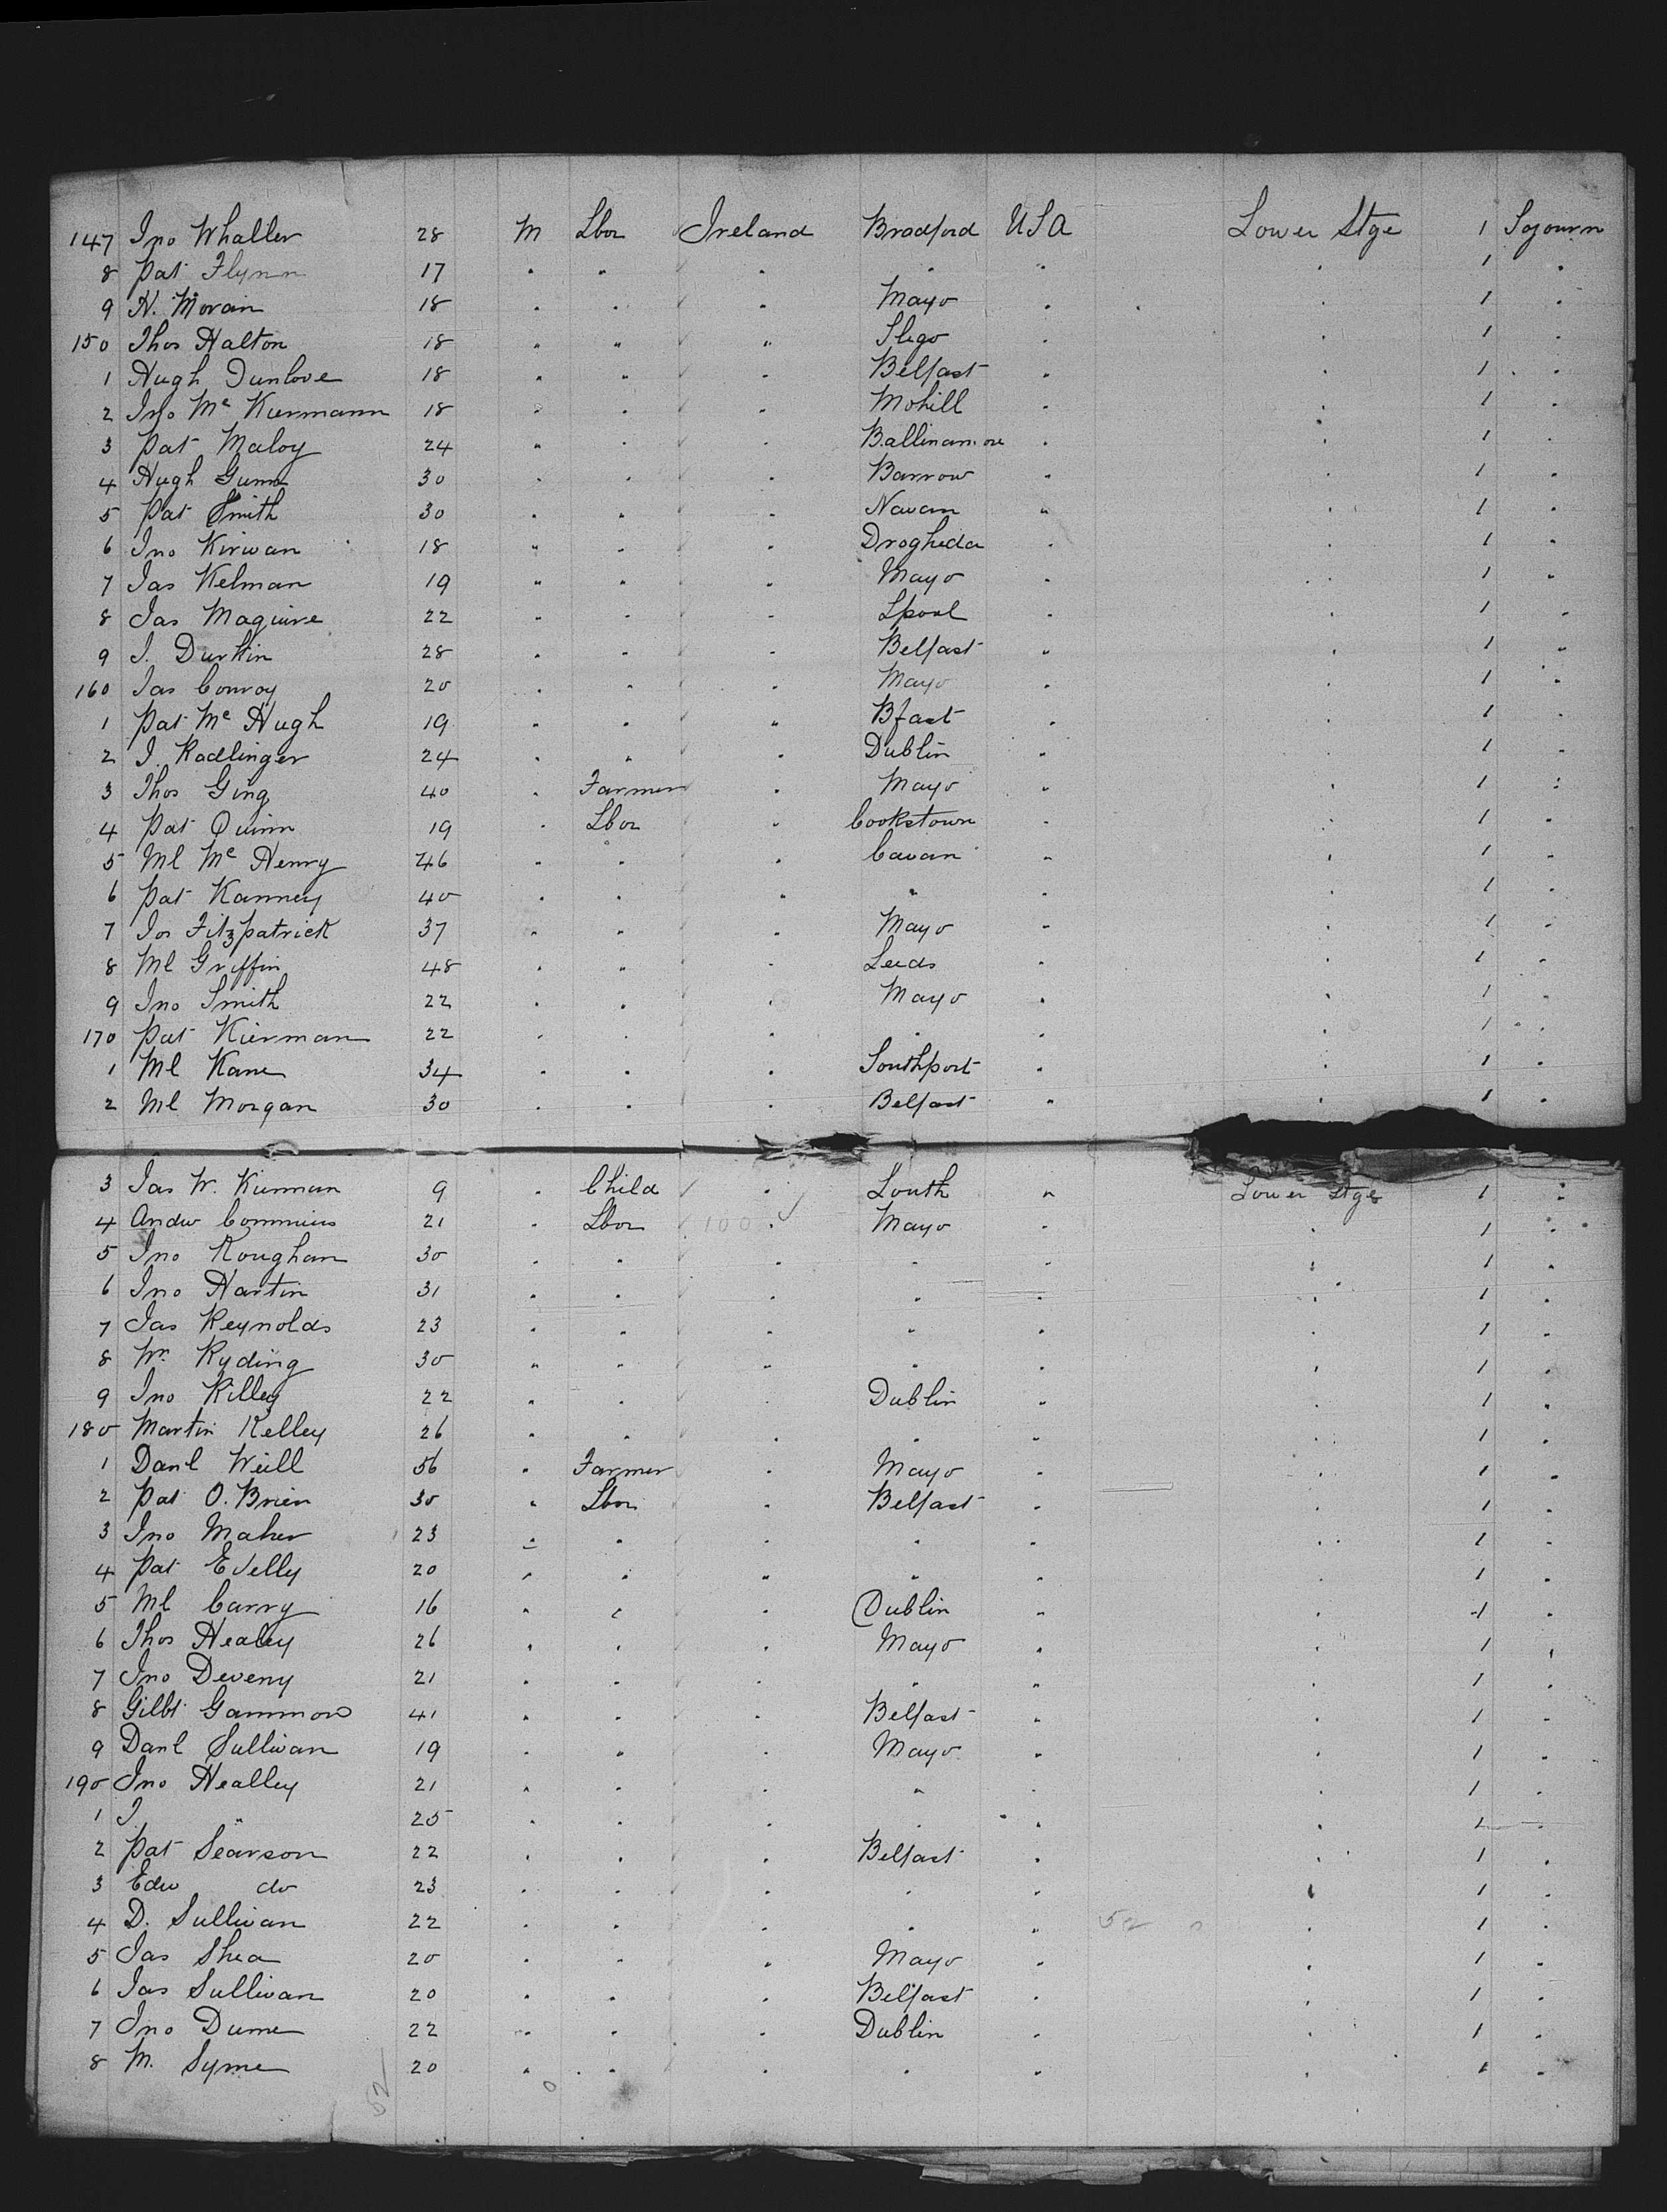 147 Jno Whaller 28 M Lbor Ireland Bradford USA Lower Stge 1 Sojourn
8 Pat Flynn 17 " " " " " " 1 "
9 H. Moran 18 " " " Mayo " " 1 "
150 Thos Halton 18 " " " Sligo " " 1 "
1 Hugh Dunlove 18 " " " Belfast " " 1 "
2 Jno Mc Kiermann 18 " " " Mohill " " 1 "
3 Pat Maloy 24 " " " Ballinamore " " 1 "
4 Hugh Gunn 30 " " " Barrow " " 1 "
5 Pat Smith 30 " " " Navan " " 1 "
6 Jno Kirwan 18 " " " Drogheda " " 1 "
7 Jas Kelman 19 " " " Mayo " " 1 "
8 Jas Maguire 22 " " " Lpool " " 1 "
9 J. Durkin 28 " " " Belfast " " 1 "
160 Jas Conroy 20 " " " Mayo " " 1 "
1 Pat Mc Hugh 19 " " " Bfast " " 1 "
2 J. Radlinger 24 " " " Dublin " " 1 "
3 Thos Ging 40 " Farmer " Mayo " " 1 "
4 Pat Quinn 19 " Lbor " Cookstown " " 1 "
5 Ml Mc Henry 46 " " " Cavan " " 1 "
6 Pat Kanney 40 " " " " " " 1 "
7 Jos Fitzpatrick 37 " " " Mayo " " 1 "
8 Ml Griffin 48 " " " Leeds " " 1 "
9 Jno Smith 22 " " " Mayo " " 1 "
170 Pat Kierman 22 " " " " " " 1 "
1 Ml Kane 34 " " " Southport " " 1 "
2 Ml Morgan 30 " " " Belfast " " 1 "
3 Jas W. Kiernan 9 " Child " Louth " Lower Stge 1 "
4 Andw Commins 21 " Lbor 100 " Mayo " " 1 "
5 Jno Roughan 30 " " " " " " 1 "
6 Jno Hartin 31 " " " " " " 1 "
7 Jas Reynolds 23 " " " " " " 1 "
8 Wm Ryding 30 " " " " " " 1 "
9 Jno Killey 22 " " " Dublin " " 1 "
180 Martin Kelley 26 " " " " " " 1 "
1 Danl Weill 56 " Farmer " Mayo " " 1 "
2 Pat O. Brien 30 " Lbor " Belfast " " 1 "
3 Jno Maher 23 " " " " " " 1 "
4 Pat 20 " " " " " " 1 "
5 Ml Carry 16 " " " Dublin " " 1 "
6 Thos Healey 26 " " " Mayo " " 1 "
7 Jno Deveny 21 " " " " " " 1 "
8 Gilbt Gammon 41 " " " Belfast " " 1 "
9 Danl Sullivan 19 " " " Mayo " " 1 "
190 Jno Healley 21 " " " " " " 1 "
1 J. " 25 " " " " " " 1 "
2 Pat Searson 22 " " " Belfast " " 1 "
3 Edw do 23 " " " " " " 1 "
4 D. Sullivan 22 " " " " " 52 " 1 "
5 Jas Shea 20 " " " Mayo " " 1 "
6 Jas Sullivan 20 " " " Belfast " " 1 "
7 Jno Dume 22 " " " Dublin " " 1 "
8 M. Syme 20 " " " " " " 1 "
52